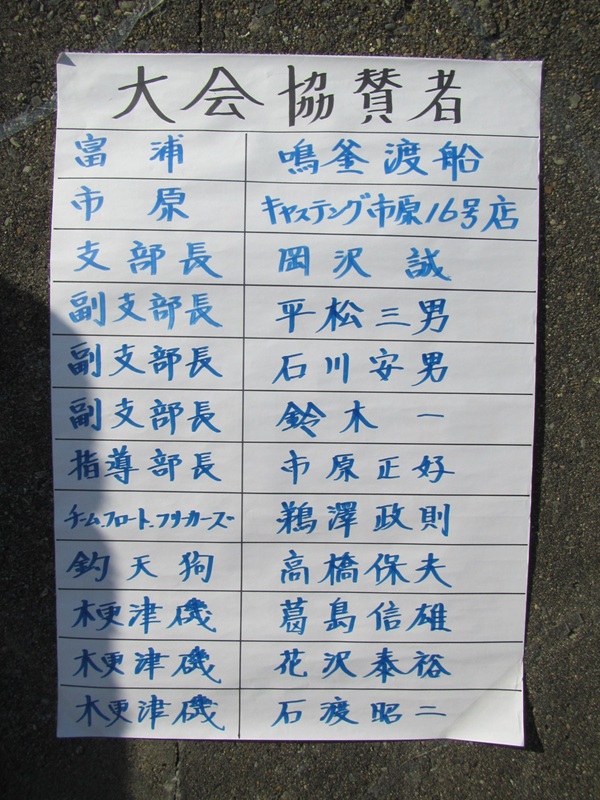 大会協賛者
富浦 鳴釜渡船
市原 キャスティング市原16号店
支部長 岡沢誠
副支部長 平松三男
副支部長 石川安男
副支部長 鈴木一
指導部長 市原正好
チームフロートフリーカーズ 鵜澤政則
釣天狗 高橋保夫
木更津磯 葛島信雄
木更津磯 花沢泰裕
木更津磯 石渡昭二